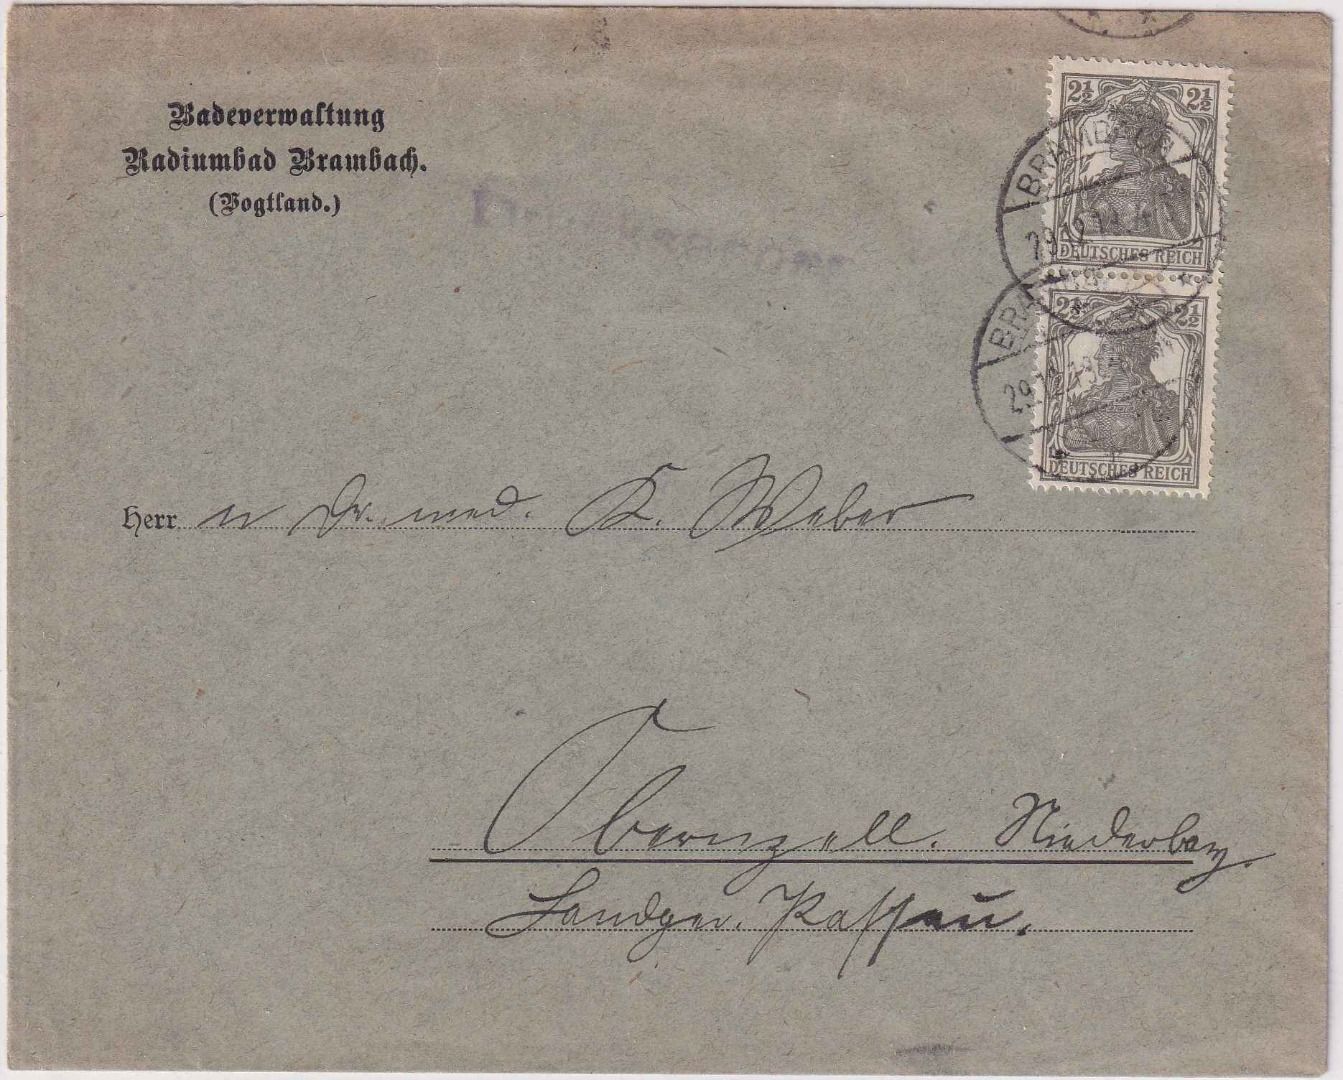 Badeverwaltung
Radiumbad Brambach.
(Vogtland.)
2½ 2½
DEUTSCHES REICH
BRAMBACH
29.12.19
2½ 2½
DEUTSCHES REICH
29.12.19
Herrn Dr. med. K. Weber
Obernzell. Niederbay.
Landger. Passau.